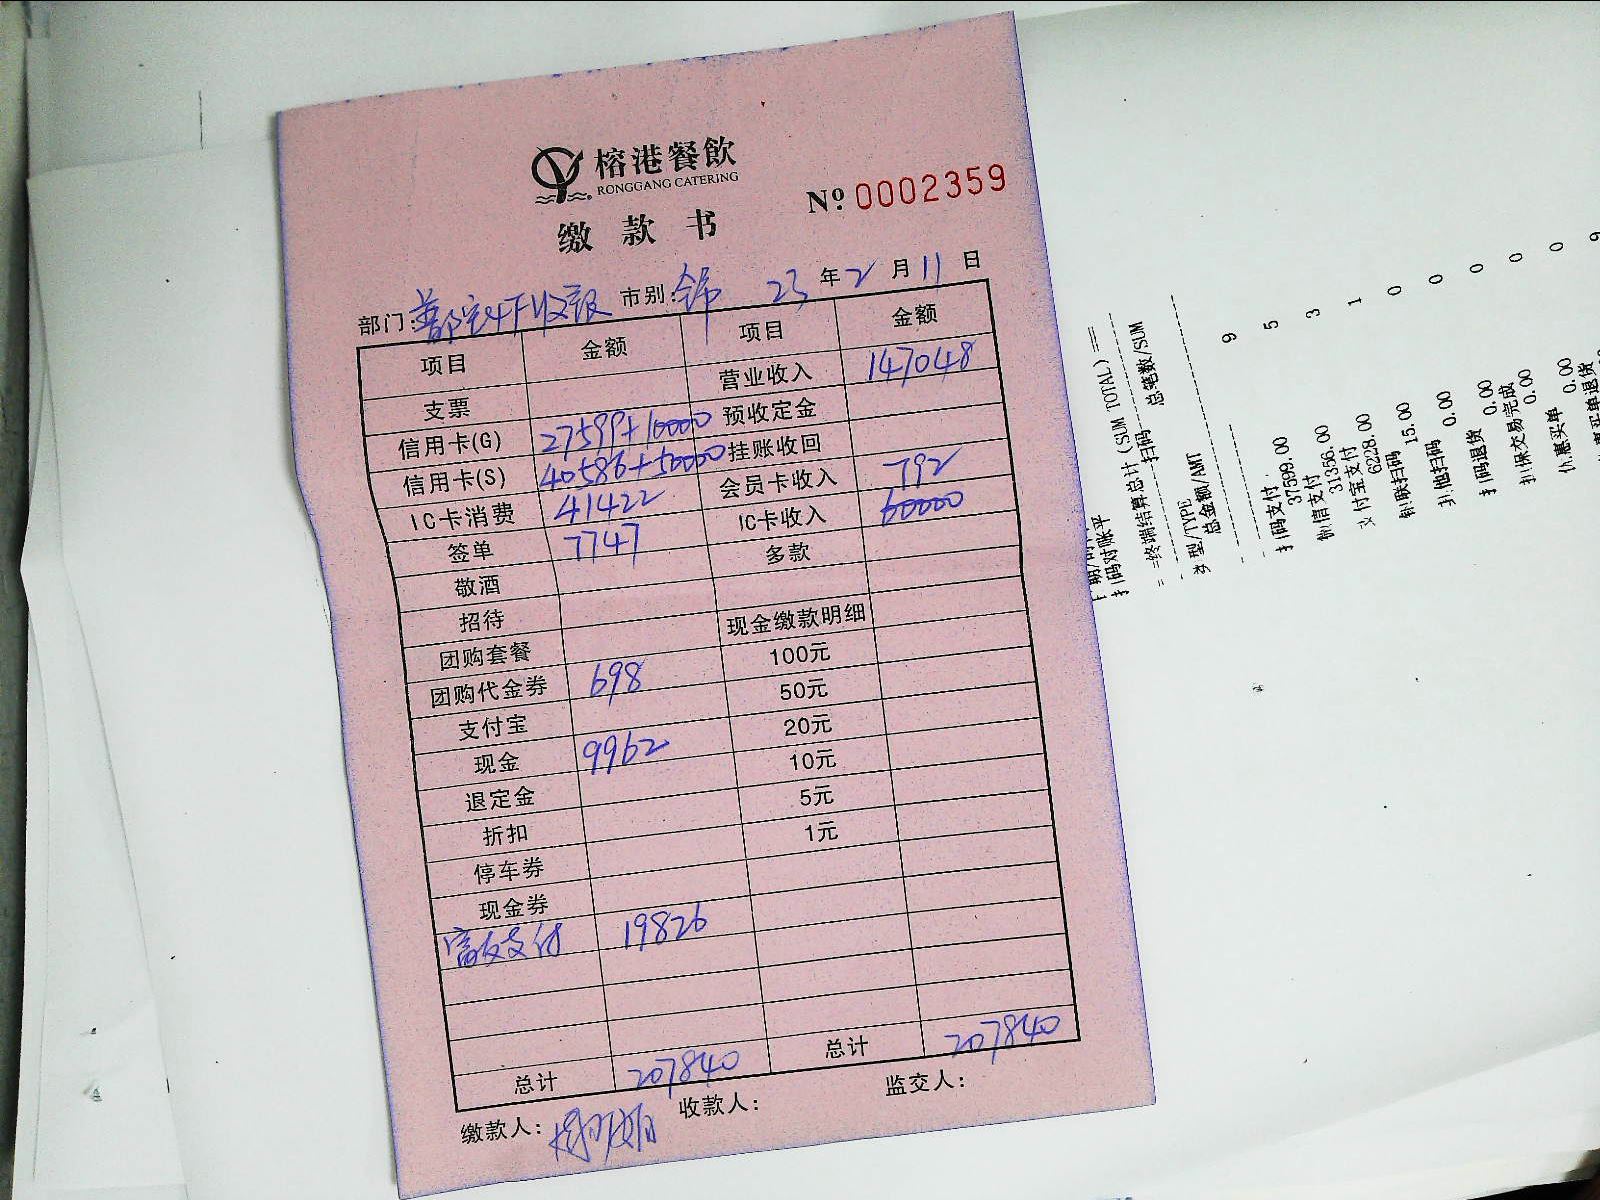 榕港餐飲
RONGGANG CATERING
缴款书
№ 0002359
部门: 市别: 23 年 2 月 11 日
项目 金额 项目 金额
支票 营业收入 147048
信用卡(G) 27599+10000 预收定金
信用卡(S) 40586+50000 挂账收回
IC卡消费 41422 会员卡收入 792
签单 7747 IC卡收入 60000
敬酒 多款
招待
团购套餐 现金缴款明细
团购代金券 698 100元
支付宝 50元
现金 9962 20元
退定金 10元
折扣 5元
停车券 1元
现金券
富友支付 19826
总计 207840 总计 207840
缴款人: 收款人: 监交人:
扫码对账平
==终端结算总计(SUM TOTAL)==
扫码
类型/TYPE 总笔数/SUM
总金额/AMT
扫码支付 9
37599.00
微信支付 5
31356.00
支付宝支付 3
6228.00
银联扫码 1
15.00
其他扫码 0
0.00
扫码退货 0
0.00
担保交易完成 0
0.00
优惠买单 0
0.00